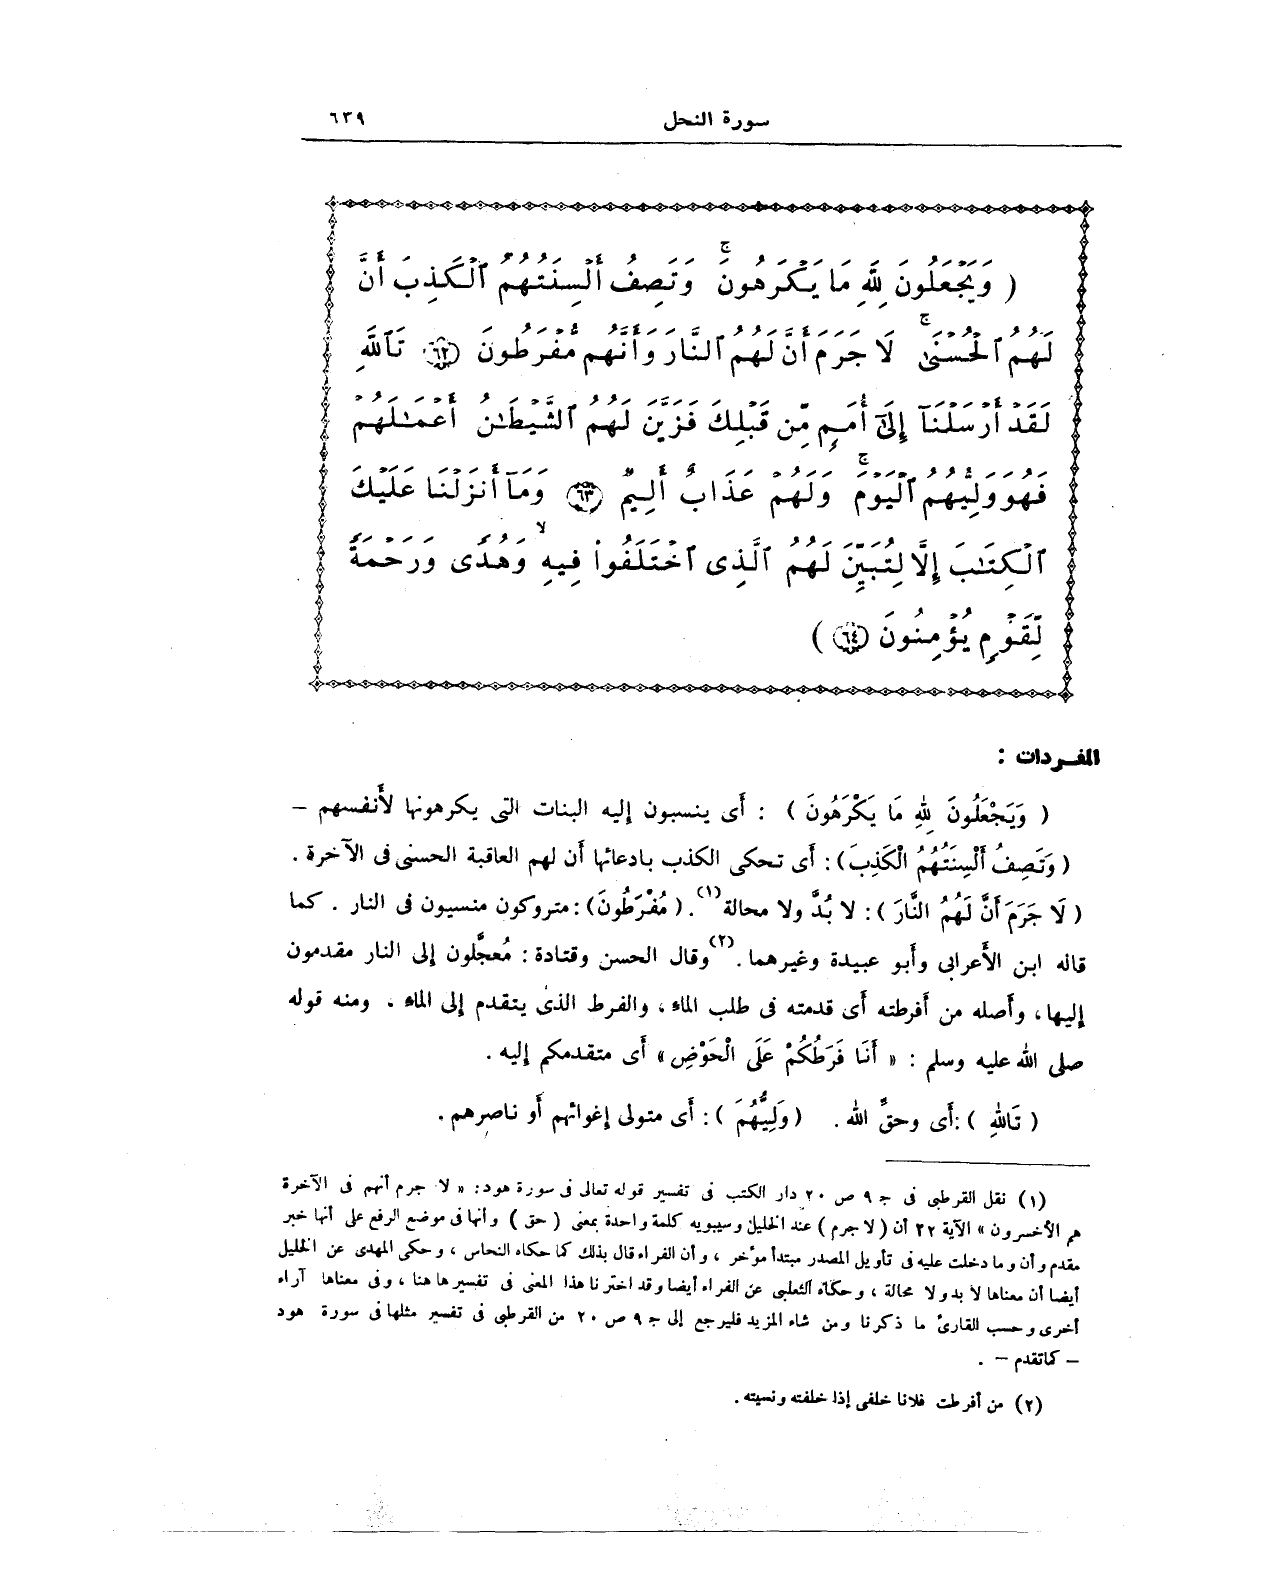 سورة النحل ٦٣٩
( وَيَجْعَلُونَ لِلَّهِ مَا يَكْرَهُونَ ۚ وَتَصِفُ أَلْسِنَتُهُمُ ٱلْكَذِبَ أَنَّ
لَهُمُ ٱلْحُسْنَىٰ ۚ لَا جَرَمَ أَنَّ لَهُمُ ٱلنَّارَ وَأَنَّهُم مُّفْرَطُونَ ﴿٦٢﴾ تَٱللَّهِ
لَقَدْ أَرْسَلْنَآ إِلَىٰٓ أُمَمٍ مِّن قَبْلِكَ فَزَيَّنَ لَهُمُ ٱلشَّيْطَٰنُ أَعْمَٰلَهُمْ
فَهُوَ وَلِيُّهُمُ ٱلْيَوْمَ ۚ وَلَهُمْ عَذَابٌ أَلِيمٌ ﴿٦٣﴾ وَمَآ أَنزَلْنَا عَلَيْكَ
ٱلْكِتَٰبَ إِلَّا لِتُبَيِّنَ لَهُمُ ٱلَّذِى ٱخْتَلَفُوا۟ فِيهِ ۙ وَهُدًى وَرَحْمَةً
لِّقَوْمٍ يُؤْمِنُونَ ﴿٦٤﴾ )
المفـردات :
( وَيَجْعَلُونَ لِلهِ مَا يَكْرَهُونَ ) : أَى ينسبون إليه البنات التى يكرهونها لأَنفسهم –
( وَتَصِفُ أَلْسِنَتُهُمُ الْكَذِبَ ) : أَى تحكى الكذب بادعائها أَن لهم العاقبة الحسنى فى الآخرة .
( لَا جَرَمَ أَنَّ لَهُمُ النَّارَ ) : لا بُدَّ ولا محالة (١) . ( مُفْرَطُونَ) : متروكون منسيون فى النار . كما
قاله ابن الأَعرابى وأَبو عبيدة وغيرهما . (٢) وقال الحسن وقتادة : مُعجَّلون إلى النار مقدمون
إليها ، وأَصله من أَفرطته أَى قدمته فى طلب الماء ، والفرط الذى يتقدم إلى الماء . ومنه قوله
صلى الله عليه وسلم : « أَنَا فَرَطُكُمْ عَلَى الْحَوْضِ » أَى متقدمكم إليه .
( تَاللهِ ) : أَى وحقِّ الله . ( وَلِيُّهُمَ ) : أَى متولى إغوائهم أَو ناصرهم .
(١) نقل القرطبى فى جـ ٩ ص ٢٠ دار الكتب فى تفسير قوله تعالى فى سورة هود : « لا جرم أنهم فى الآخرة
هم الأخسرون » الآية ٢٢ أن ( لا جرم ) عند الخليل وسيبويه كلمة واحدة بمعنى ( حق ) وأنها فى موضع الرفع على أنها خبر
مقدم وأن وما دخلت عليه فى تأويل المصدر مبتدأ مؤخر ، وأن الفراء قال بذلك كما حكاه النحاس ، وحكى المهدى عن الخليل
أيضا أن معناها لا بد ولا محالة ، وحكاه الثعلبى عن الفراء أيضا وقد اخترنا هذا المعنى فى تفسيرها هنا ، وفى معناها آراء
أخرى وحسب القارئ ما ذكرنا ومن شاء المزيد فليرجع إلى جـ ٩ ص ٢٠ من القرطبى فى تفسير مثلها فى سورة هود
– كما تقدم – .
(٢) من أفرطت فلانا خلفى إذا خلفته ونسيته .